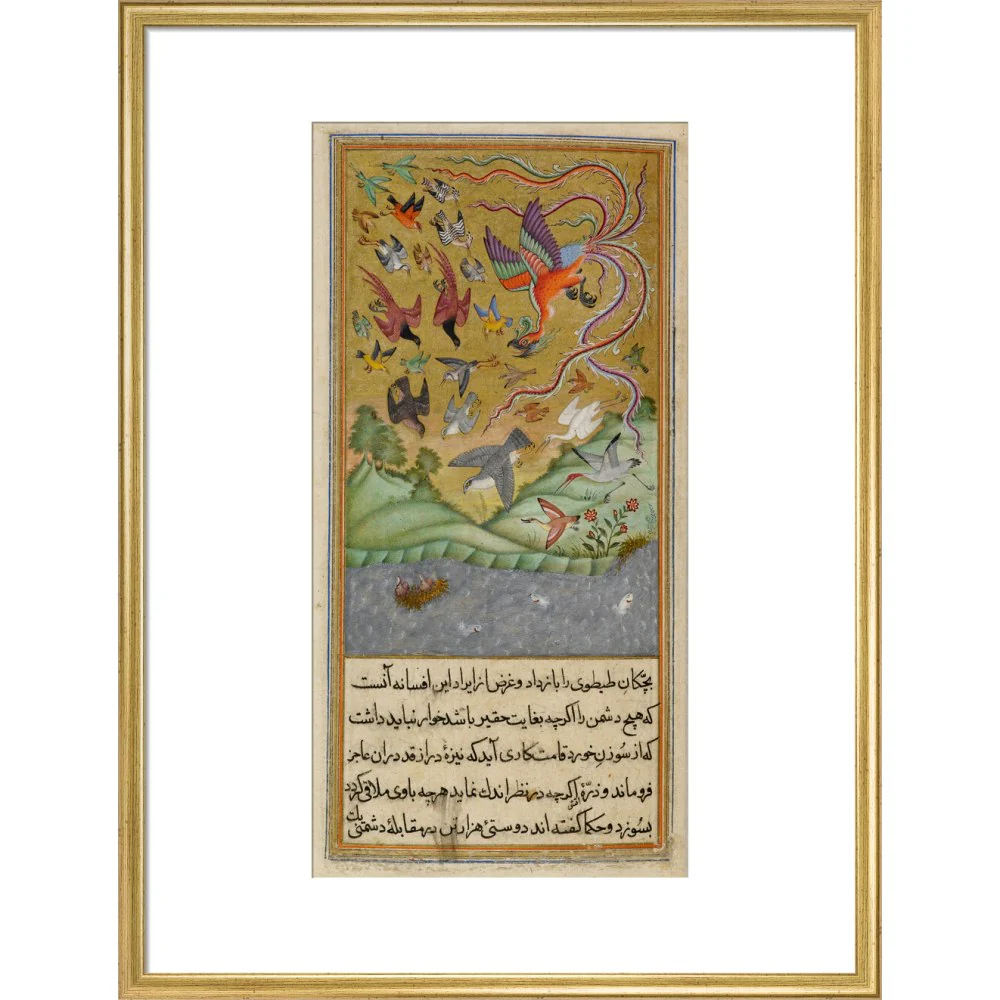 بچّکان طیطوی را باز داد و غرض از ایراد این افسانه آنست
که هیچ دشمن را اکرچه بغایت حقیر باشد خوار نباید داشت
که از سُوزنِ خورد قامت کاری آید که نیزهٔ دراز قد دران عاجز
فروماند و ذرّهٔ آتش اکرچه در نظر اندك نماید هرچه باوی ملاقی کردد
بسوزد و حکما کفته اند دوستیٔ هزار تن در مقابلهٔ دشمنیٔ یك